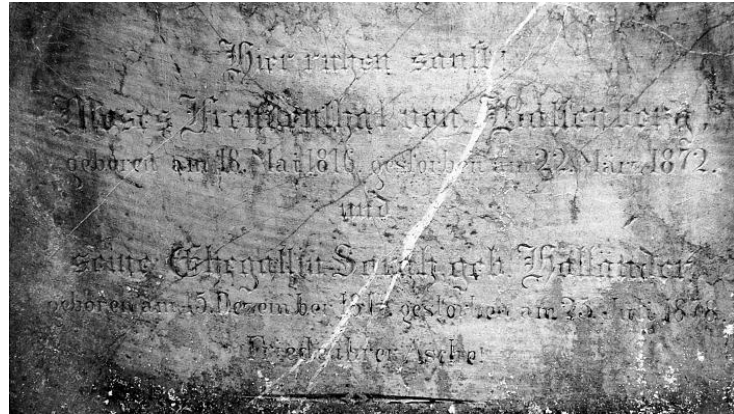 Hier ruhen sanft!
Moses Freudenthal von Bollenberg,
geboren am 18. Mai 1816, gestorben am 22. März 1872.
und
seine Ehegattin Sarah geb. Holländer
geboren am 15. Dezember gestorben am 25. 1878
Friede ihrer Asche!